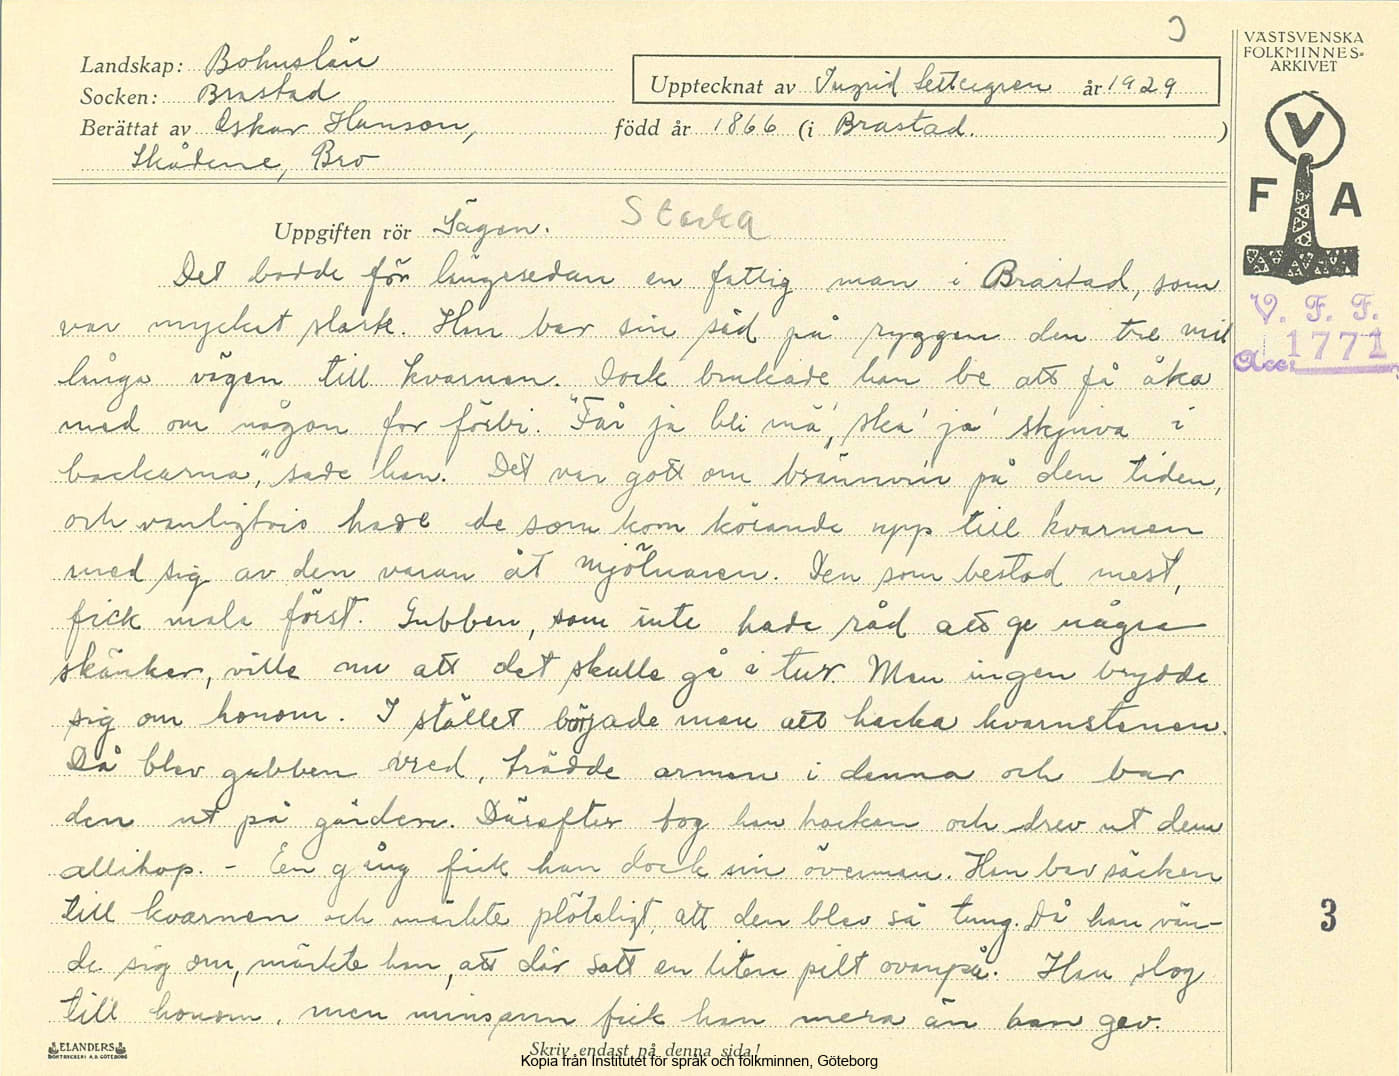 Landskap: Bohuslän
Socken: Brastad
Upptecknat av Ingrid Settergren år 1929
Berättat av Oskar Hanson, född år 1866 (i Brastad. )
Skådene, Bro
Uppgiften rör Sägen. Starka
Det bodde för längesedan en fattig man i Brastad, som
var mycket stark. Han bar sin säd på ryggen den tre mil
långa vägen till kvarnen. Dock brukade han be att få åka
med om någon for förbi. "Får ja bli mä', ska' ja' skjuva i
backarna," sade han. Det var gott om brännvin på den tiden,
och vanligtvis hade de som kom körande upp till kvarnen
med sig av den varan åt mjölnaren. Den som bestod mest,
fick mala först. Gubben, som inte hade råd att ge några
skänker, ville nu att det skulle gå i tur. Men ingen brydde
sig om honom. I stället började man att hacka kvarnstenen.
Då blev gubben vred, trädde armen i denna och bar
den ut på gården. Därefter tog han hacken och drev ut dem
allihop. - En gång fick han dock sin överman. Han bar säcken
till kvarnen och märkte plötsligt, att den blev så tung. Då han vän-
de sig om, märkte han, att där satt en liten pilt ovanpå. Han slog
till honom, men minsann fick han mera än han gav.
ELANDERS
BOKTRYCKERI A.B. GÖTEBORG
Skriv endast på denna sida!
Kopia från Institutet för språk och folkminnen, Göteborg
VÄSTSVENSKA
FOLKMINNES-
ARKIVET
V
F A
V. F. F.
Acc. 1771
3